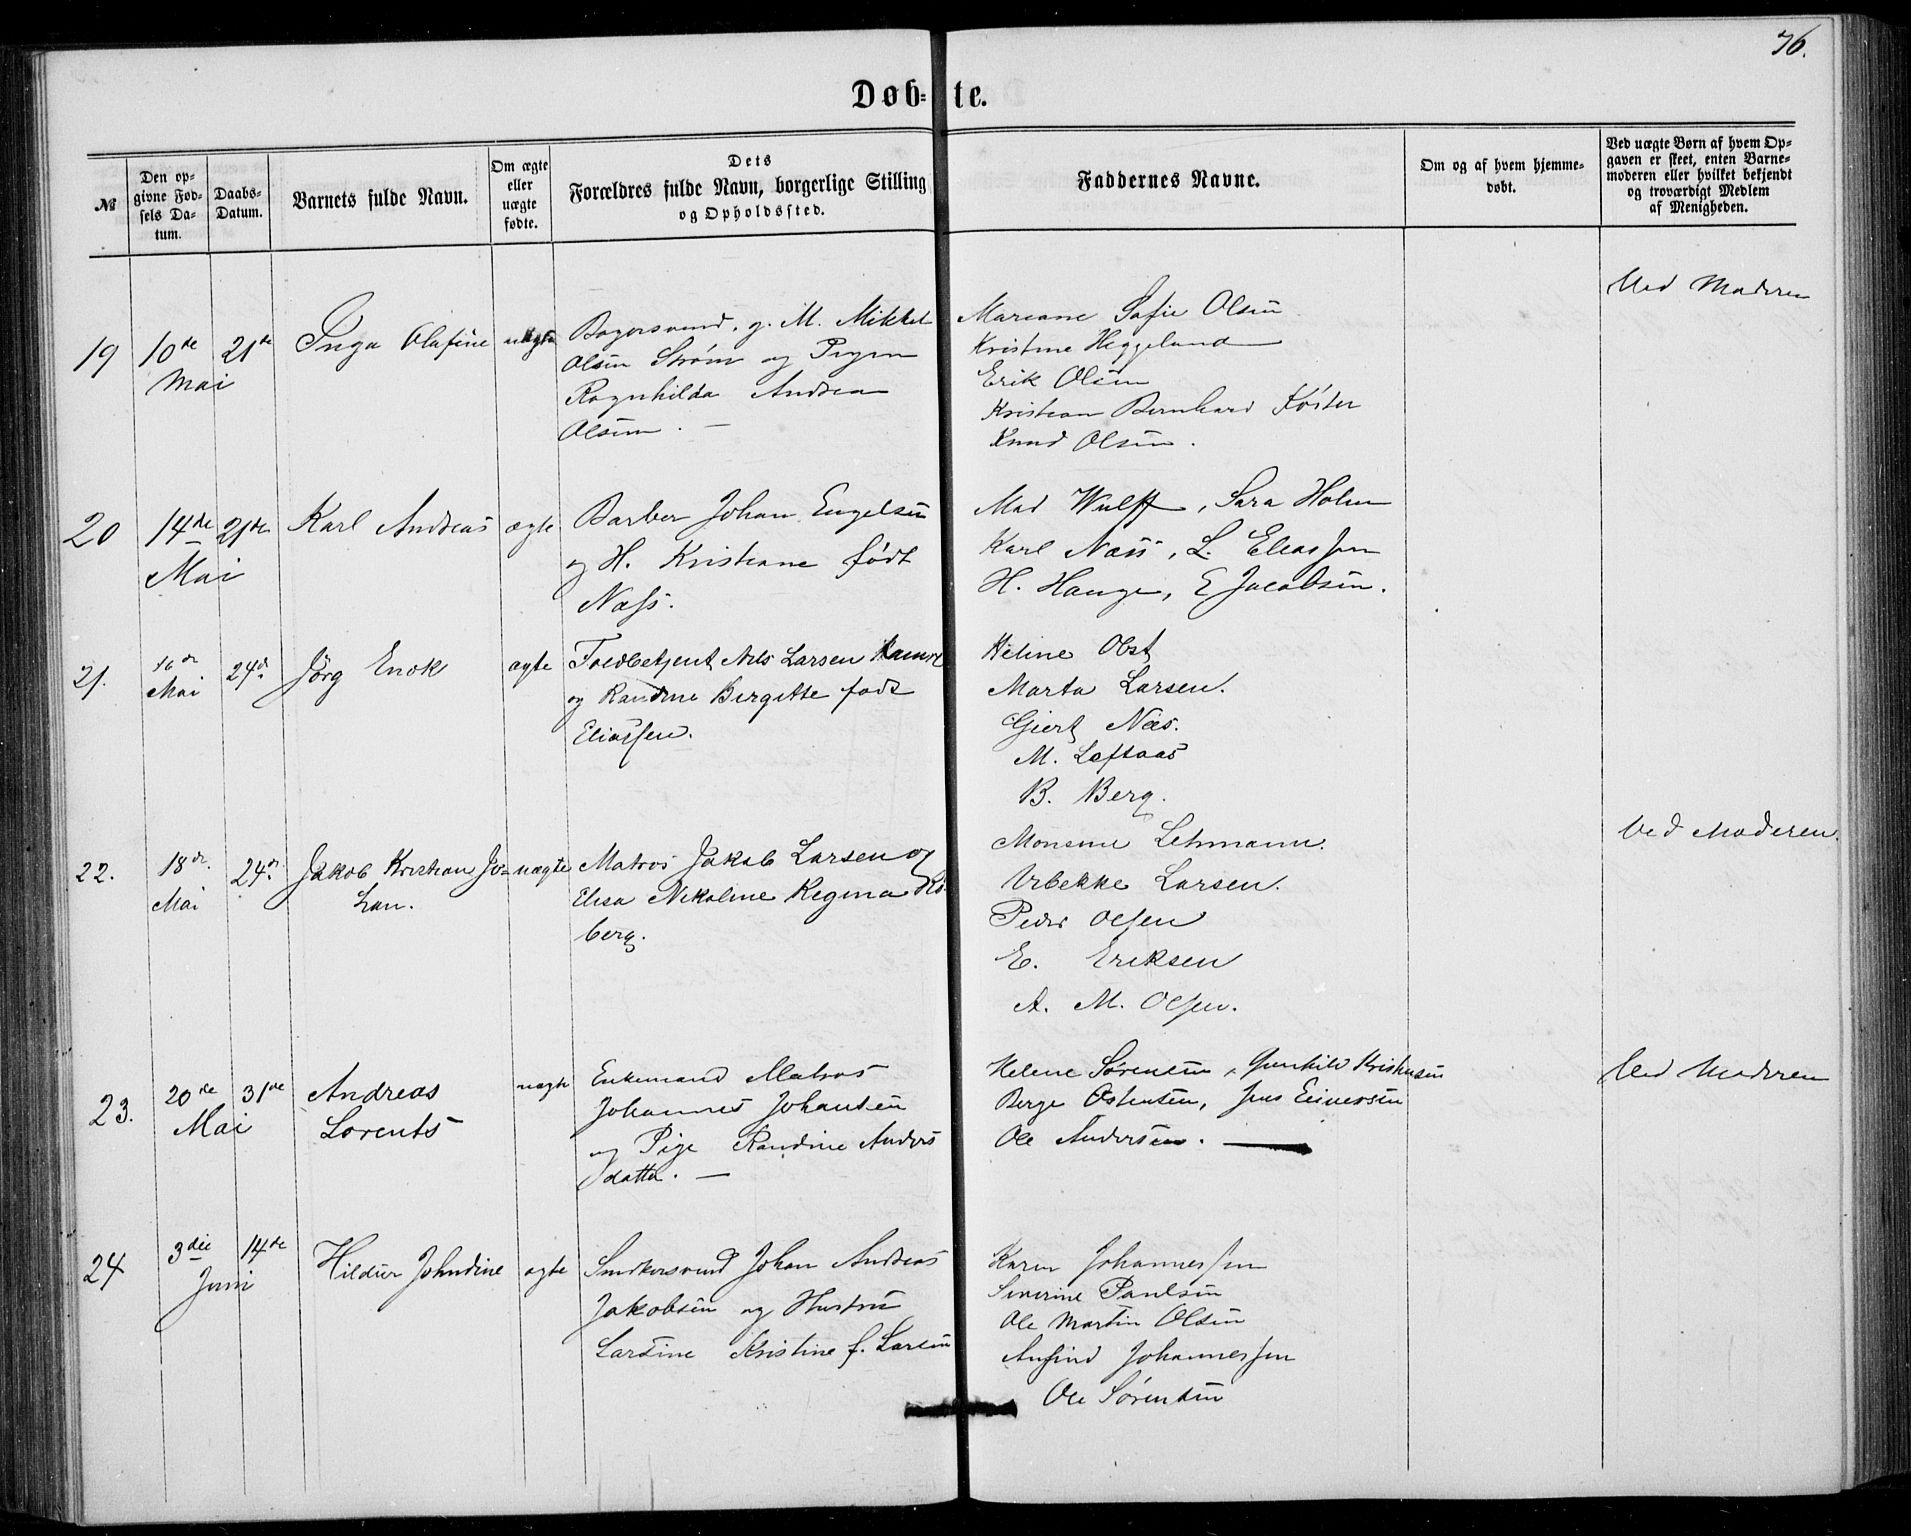 76.
Døb-te.
№
Den op-
givne Fød-
sels Da-
tum.
Daabs-
Datum.
Barnets fulde Navn.
Om ægte
eller
uægte
fødte.
Dets
Forældres fulde Navn, borgerlige Stilling
og Opholdssted.
Faddernes Navne.
Om og af hvem hjemme-
døbt.
Ved uægte Børn af hvem Op-
gaven er skeet, enten Barne-
moderen eller hvilket bekjendt
og troværdigt Medlem
af Menigheden.
19 10de 21de
Mai
Inga Olafine
uægte
Bagersvend, g. M. Mikkel
Olsen Strøm og Pigen
Ragnhilda Andrea
Olsen. —
Mareane Sofie Olsen
Kristine Heggelund
Erik Olsen
Kristian Bernhard Köster
Knud Olsen.
Ved Moderen
20 14de 21de
Mai
Karl Andreas
ægte
Barber Johan Engelsen
og H. Kristiane født
Næss.
Mad Wulff, Sara Holm
Karl Næss, L. Eliassen
H. Hauge, E Jacobsen.
21. 16de 24de
Mai
Jörg Enok
ægte
Toldbetjent Nils Larsen
og Randine Birgitte født
Eliassen.
Heline Obst
Marta Larsen.
Gjert Næs.
M. Loftaas
B. Berg.
22. 18de 24de
Mai
Jakob Kristian Jo-
han.
uægte
Matros Jakob Larsen og
Elisa Nikoline Regina
berg.
Monsine Lehmann.
Vibekke Larsen.
Peder Olsen
E. Eriksen
A. M. Olsen.
Ved Moderen.
23. 20de 31de
Mai
Andreas
Lorents
uægte
Enkemand Matros
Johannes Johansen
og Pige Randine Anders
datter. —
Helene Sørensen, Gunhild Kristensen
Berge Ostensen, Jens Einersen
Ole Andersen. —
Ved Moderen
24 3die 14de
Juni
Hildur Johndine
ægte
Snedkersvend Johan Andreas
Jakobsen og Hustru
Lardine Kristine f. Larsen
Karen Johannessen
Severine Paulsen
Ole Martin Olsen
Anfind Johannessen
Ole Sørensen